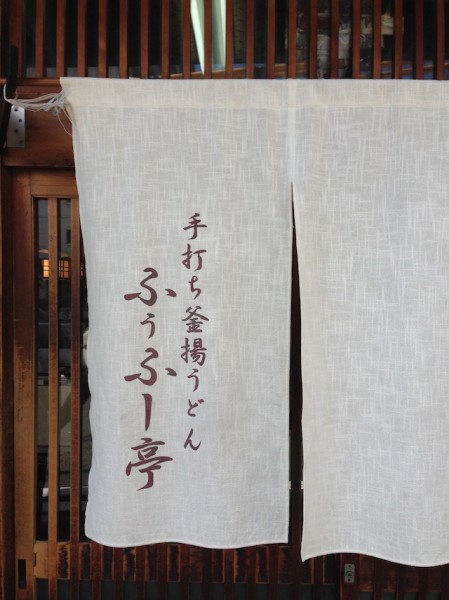 手打ち釜揚うどん
ふぅふー亭